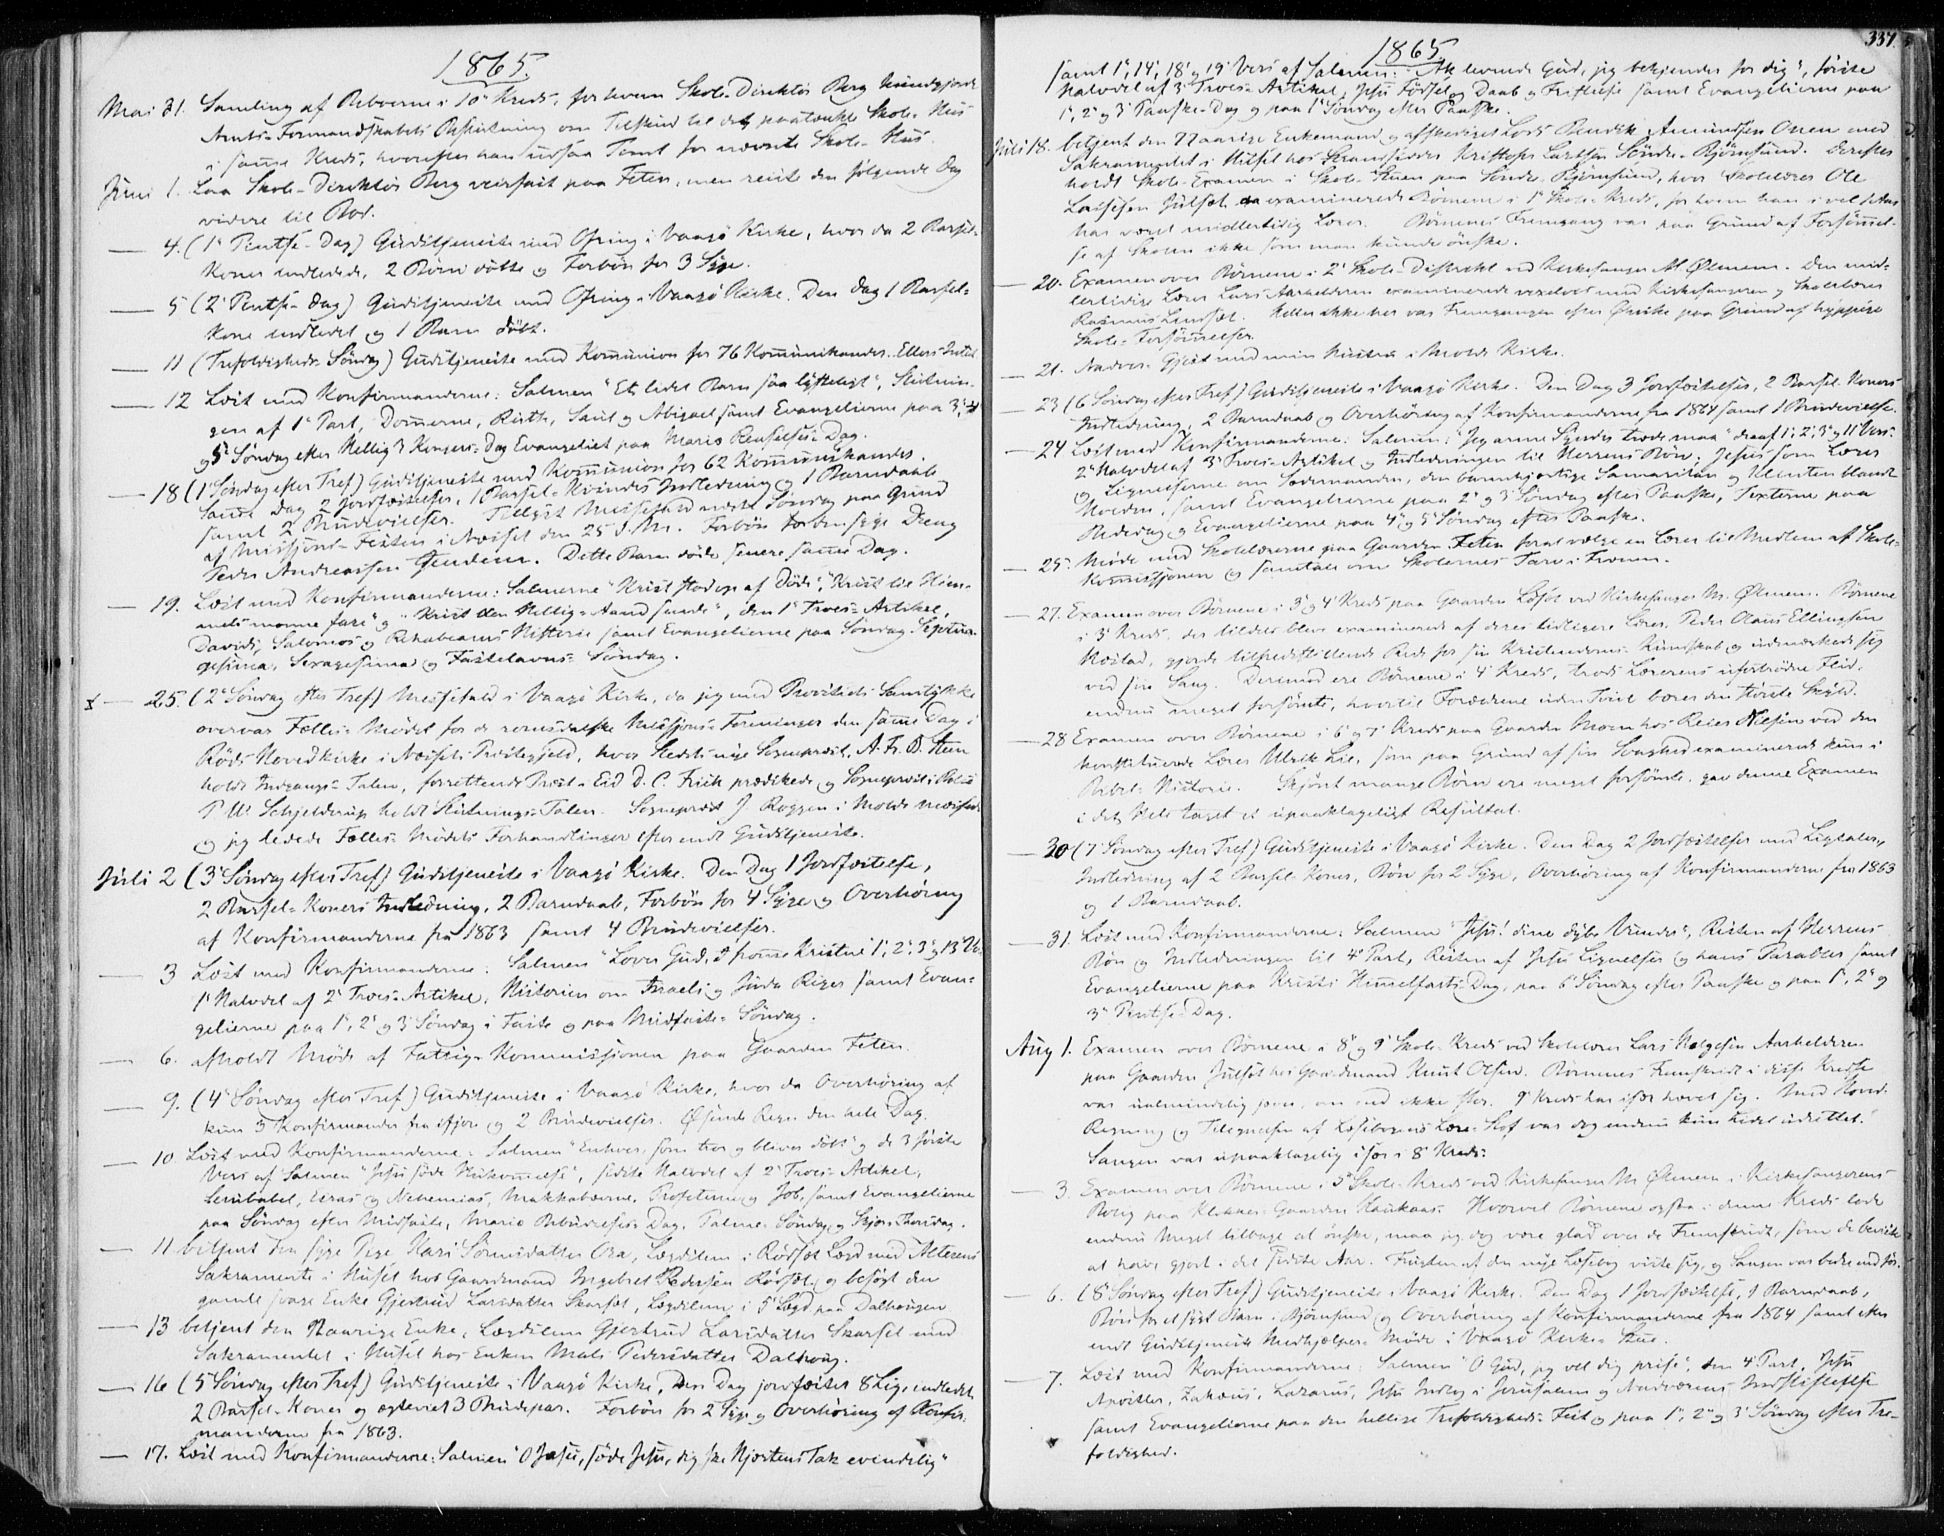 1865
Mai 31. Samling af Beboerne i 10de Kreds, for hvem Skole-Direktør Berg kundgjorde
Amts-Formandskabets Beslutning om Tilskud til det paatænkte Skole-Hus
i samme Kreds, hvorefter han udsaa Tomt for nævnte Skole-Hus.
Juni 1. Laa Skole-Direktør Berg veirfast paa Feten, men reiste den følgende Dag
videre til Bod.
— 4. (1ste Pintse-Dag) Gudstjeneste med Ofring i Vaagø Kirke, hvor da 2 Barsel-
Koner indledede, 2 Børn døbte og Forbøn for 3 Syge.
— 5 (2den Pintse-Dag) Gudstjeneste med Ofring i Vaagø Kirke. Den Dag 1 Barsel-
kone indledet og 1 Barn døbt.
— 11 (Trefoldigheds-Søndag) Gudstjeneste med Kommunion for 76 Kommunikanter. Ellers Intet
— 12 Læst med Konfirmanderne: Salmen "Et lidet Barn saa lysteligt", Slutnin-
gen af 1ste Part, Dommerne, Ruth, Saul og Abigael samt Evangelierne paa 3die, 4de
og 5te Søndag efter Hellig 3 Kongers-Dag Evangeliet paa Mariæ Renselses-Dag.
— 18 (1ste Søndag efter Tref) Gudstjeneste med Kommunion for 62 Kommunikanter.
Samme Dag 2 Jordfæstelser, 1 Barsel-Kvindes Indledning og 1 Barnedaab
samt 2 Brudevielser. Tillyst Messefald næste Søndag paa Grund
af Missions-Festen i Nesset den 25 d. M. Forbøn for den syge Dreng
Peder Andreassen. Dette Barn døde senere samme Dag.
— 19. Læst med Konfirmanderne: Salmerne "Krist stod op af Døde", "Krist til Him-
mels monne fare" og "Krist den Hellig-Aand sende", den 1ste Troes-Artikel,
Davids, Salomos og Rehabeams Historie samt Evangelierne paa Søndag Septua-
gesima, Sexagesima og Fastelavns-Søndag.
x — 25. (2den Søndag efter Tref) Messefald i Vaagø Kirke, da jeg med Provstiets Samtykke
overvar Fælles-Mødet for de romsdalske Missions-Foreninger den samme Dag i
Røds Hovedkirke i Nessets Præstegjeld, hvor Stedets nye Sogneprest, A. Fr. B. Stem
holdt Indgangs-Talen, forrettende Præst i Eid D. C. Friis prædikede og Sogneprest i Bolsø
P. W. Schjelderup holdt Slutnings-Talen. Sogneprest J. Roggen i Molde messede
og jeg ledede Fælles-Mødets Forhandlinger efter endt Gudstjeneste.
Juli 2 (3die Søndag efter Tref) Gudstjeneste i Vaagø Kirke. Den Dag 1 Jordfæstelse,
2 Barsel-Koners Indledning, 2 Barnedaab, Forbøn for 4 Syge og Overhøring
af Konfirmanderne fra 1863 samt 4 Brudevielser.
— 3 Læst med Konfirmanderne: Salmen "Lover Gud, I fromme Kristne 1, 2, 3 og 13 V.
1ste Halvdel af 2den Troes-Artikel, Historien om Israels og Juda Riger samt Evan-
gelierne paa 1ste, 2den og 3die Søndag i Faste og paa Midfaste-Søndag.
— 6. afholdt Møde af Fattig-Kommissionen paa Gaarden Feten.
— 9. (4de Søndag efter Tref) Gudstjeneste i Vaagø Kirke, hvor da Overhøring af
kun 3 Konfirmander fra ifjor og 2 Brudevielser. Øsende Regn den hele Dag.
— 10 Læst med Konfirmanderne: Salmen "Enhver, som tror og bliver døbt" og de 3 første
Vers af Salmen "Jesu søde Hukommelse", sidste Halvdel af 2den Troes-Artikel,
Serubabel, Esras og Nehemias, Makkabæerne, Profeterne og Job, samt Evangelierne
paa Søndag efter Midfaste, Mariæ Bebudelses-Dag, Palme-Søndag og Skjær-Thorsdag.
— 11 betjent den syge Pige Kari Sørensdatter Ora, Lægdslem i Rødsets Lægd med Alterens
Sakramente i Huset hos Gaardmand Ingebret Pedersen Rødset, og besøgt den
gamle svage Enke Gjertrud Larsdatter Skarset, Lægdslem i 5te Lægd paa Dalhaugen
— 13 betjent den aarige Enke, Lægdslem Gjertrud Larsdatter Skarset med
Sakramentet i Huset hos Enken Mali Pedersdatter Dalhaug.
— 16 (5te Søndag efter Tref) Gudstjeneste i Vaagø Kirke, Den Dag jordfæstet 8 Lig, indledet
2 Barsel-Koner og ægteviet 3 Brudepar. Forbøn for 2 Syge og Overhøring af Konfir-
manderne fra 1863.
— 17. Læst med Konfirmanderne: Salmen "O Jesu, søde Jesu, dig ske Hjertens Tak evindelig"
337
1865
samt 1ste, 14de, 18de og 19de Vers af Salmen: "Ak levende Gud, jeg bekjender for dig", første
Halvdel af 3die Troes-Artikel, Jesu Fødsel og Daab og Fristelse samt Evangelierne paa
1ste, 2den og 3die Paaske-Dag og paa 1ste Søndag efter Paaske.
Juli 18. betjent den 77aarige Enkemand og afskediget Lods Bendik Amundsen Onen med
Sakramentet i Huset hos Strandsidder Kristofer Larssen Søndre-Bjørnsund. Derefter
holdt Skole-Examen i Skole-Stuen paa Søndre-Bjørnsund, hvor Skolelærer Ole
Lassesen Julset examinerede Børnene i 1ste Skole-Kreds, for hvem han i vel Aar
har været midlertidig Lærer. Børnenes Fremgang var paa Grund af Forsømmel-
se af Skolen ikke som man kunde ønske.
— 20. Examen over Børnene i 2den Skole-Distrikt ved Kirkesanger M. Ølmem. Den mid-
lertidige Lærer Lars Aarhelderen examinerede vexelvis med Kirkesangeren og Skolelærer
Rasmus Lindset. Heller ikke her var Fremgangen efter Ønske paa Grund af hyppige
Skole-Forsømmelser.
— 21. Nadver-Gjest med min Hustru i Molde Kirke.
— 23 (6te Søndag efter Tref) Gudstjeneste i Vaagø Kirke. Den Dag 3 Jordfæstelser, 2 Barsel-Koners
Indledning, 2 Barnedaab og Overhøring af Konfirmanderne fra 1864 samt 1 Brudevielse.
— 24 Læst med Konfirmanderne: Salmen: "Jeg arme Synder træde maa" deraf 1, 2, 3 og 11 Vers.
2den Halvdel af 3die Troes-Artikel og Indledningen til Herrens Bøn, Jesus som Lærer
og Lignelserne om Sædemanden, den barmhjertige Samaritan og Klinten blandt
Hveden, samt Evangelierne paa 2den og 3die Søndag efter Paaske, Texterne paa
Bededag og Evangelierne paa 4de og 5te Søndag efter Paaske.
— 25. Møde med Skolelærerne paa Gaarden Feten for at vælge en Lærer til Medlem af Skole-
Kommissionen og samtale om Skolernes Tarv i Troen.
— 27. Examen over Børnene i 3die og 4de Kreds paa Gaarden Løset ved Kirkesanger M. Ølmem. Børnene
i 3die Kreds, der tildels blev examinerede af deres tidligere Lærer, Peder Olaus Ellingsen
Hostad, gjorde tilfredsstillende Rede for sin Kristendoms-Kundskab og udmærkede sig
ved sin Sang. Derimod ere Børnene i 4de Kreds, trods Lærerens ufortrødne Flid,
endnu meget forsømte, hvortil Forældrene uden Tvivl bærer den største Skyld.
— 28 Examen over Børnene i 6te og 7de Kreds paa Gaarden Moen hos Reier Nilsen ved den
konstituerede Lærer Ulrik Lie, som paa Grund af sin Svaghed examinerede kun i
Bibel-Historie. Skjønt mange Børn ere meget forsømte, gav denne Examen
i det Hele taget et upaaklageligt Resultat.
— 30 (7de Søndag efter Tref) Gudstjeneste i Vaagø Kirke. Den Dag 2 Jordfæstelser med Ligtaler,
Indledning af 2 Barsel-Koner, Bøn for 2 Syge, Overhøring af Konfirmanderne fra 1863
og 1 Barnedaab.
— 31. Læst med Konfirmanderne: Salmen "Jesu! dine dybe Vunder", Resten af Herrens
Bøn og Indledningen til 4de Part, Resten af Jesu Lignelser og hans Parabler samt
Evangelierne paa Kristi Himmelfarts-Dag, paa 6te Søndag efter Paaske og paa 1ste, 2den og
3die Pintse-Dag.
Aug 1. Examen over Børnene i 8de og 9de Skole-Kreds ved Skolelærer Lars Helgesen Aarhelderen
paa Gaarden Julset hos Gaardmand Knut Olsen. Børnenes Fremskridt i disse Kredse
var ualmindelig jævn, om end ikke stor. 9de Kreds har især hævet sig. Med Hoved-
Regning og Tilegnelsen af Læsebogens Lære-Stof var dog endnu kun Lidet udrettet.
Sangen var upaaklagelig især i 8de Kreds.
— 3. Examen over Børnene i 5te Skole-Kreds ved Kirkesanger M. Ølmem i Kirkesangerens
Bolig paa Klokker-Gaarden Haukaas. Hvorvel Børnene ogsaa i denne Kreds lode
endnu Meget tilbage at ønske, maa jeg dog være glad over de Fremskridt, som de beviste
at have gjort i det sidste Aar. Frugten af den nye Læsebog viste sig, og Sangen var bedre end før.
— 6. (8de Søndag efter Tref) Gudstjeneste i Vaagø Kirke. Den Dag 1 Jordfæstelse, 1 Barnedaab,
Bøn for et sygt Barn i Bjørnsund og Overhøring af Konfirmanderne fra 1864 samt efter
endt Gudstjeneste Medhjelper-Møde i Vaagø Kirke-Stue.
— 7. Læst med Konfirmanderne: Salmen "O Gud, jeg vil dig prise", den 4de Part, Jesu
Apostler, Zakæus, Lazarus, Jesu Indtog i Jerusalem og Nadverens Indstiftelse
samt Evangelierne paa den hellige Trefoldigheds-Fest og paa 1ste, 2den og 3die Søndag efter Tre-
foldighed.